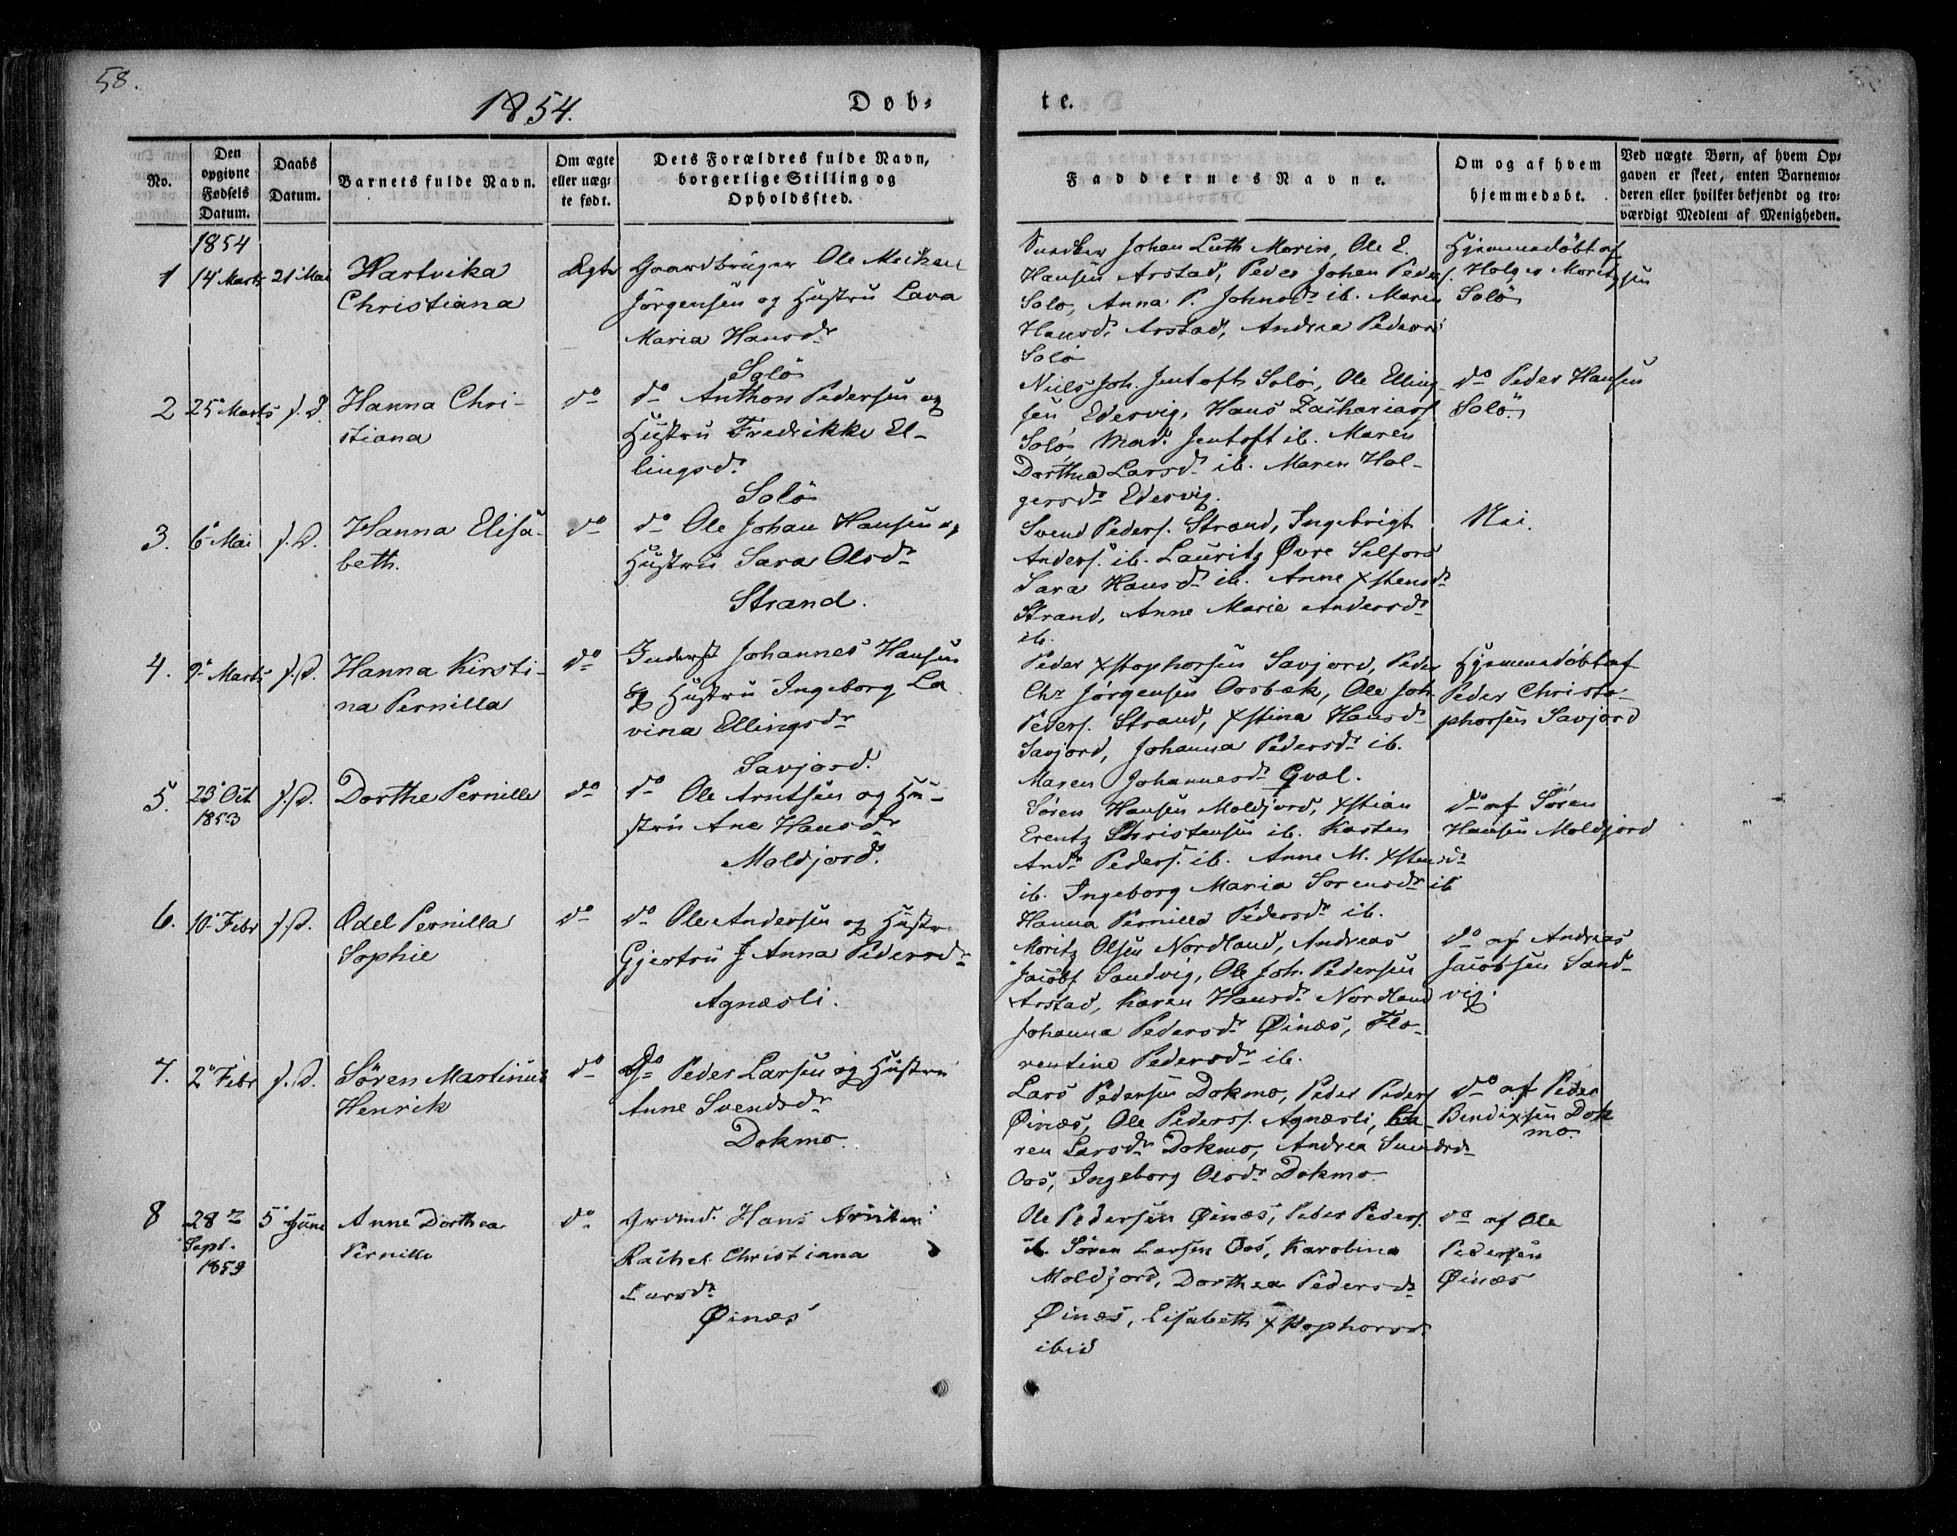 58.
1854.
Døb-
te.
No.
Den
opgivne
Fødsels
Datum.
Daabs
Datum.
Barnets fulde Navn.
Om ægte
eller uæg-
te født.
Dets Forældres fulde Navn,
borgerlige Stilling og
Opholdssted.
Faddernes Navne.
Om og af hvem
hjemmedøbt.
Ved uægte Børn, af hvem Op-
gaven er skeet, enten Barnemo-
deren eller hvilket bekjendt og tro-
værdigt Medlem af Menigheden.
1854
1
14 Marts
21 Mai
Hartvika
Christiana
Ægte
Gaardbruger Ole
Jörgensen og Hustru Lava
Maria Hansdr
Solö
Snedker Johan Luth Morin, Ole E.
Hansen Arstad, Peder Johan Peders.
Solo, Anna P. Johnsdr ib. Maren
Hansdr Arstad, Andrea Peders
Solö
Hjemmedöbt af
Holger Moritzsen
Solö
2
25 Marts
s. D.
Hanna Chri-
stiana
do
do Anthon Pedersen og
Hustru Fredrikke El-
lingsdr
Solö
Niels Joh. Jentoft Solö, Ole Elling-
sen Edesvig, Hans Zacharias
Solö, Mad. Jentoft ib. Maren
Dorthea Larsdr ib. Maren Hol-
gersdr Edesvig.
do Peder Hansen
Solö
3.
6 Mai
s. D.
Hanna Elisa-
beth.
do
do Ole Johan Hansen og
Hustru Sara Olsdr
Strand.
Svend Peders. Strand, Ingebrigt
Anders. ib. Lauritz Øvre Selfors
Sara Hansdr ib. Anne Xstensdr
Strand, Anne Marie Andersdr
ib.
Nei.
4.
9 Marts
s. D.
Hanna Kirsti-
na Pernilla
do
Inderst Johannes Hansen
og Hustru Ingeborg La
vina Ellingsdr
Savjord.
Peder Xstophorsen Savjord, Peder
Chr Jørgensen Oosbak, Ole Joh.
Peders. Strand, Xstina Hansdr
Savjord, Johanna Pedersdr ib.
Maren Johannesdr Qval.
Hjemmedöbt af
Peder Christo-
phorsen Savjord
5.
23 Oct
1853
s. D.
Dorthe Pernille
do
do Ole Arntsen og Hu-
stru Ane Hansdr
Moldjord.
Søren Hansen Moldjord, Xstian
Erentz Christensen ib. Karsten
Andr Peders. ib. Anne M. Xstensdr
ib. Ingeborg Maria Sorensdr ib
Hanna Pernilla Pedersdr ib.
do af Søren
Hansen Moldjord
6.
10 Febr
s. D.
Odel Pernilla
Sophie
do
do Ole Andersen og Hustru
Gjertru J Anna Pedersdr
Agnæsli.
Moritz Olsen Nordland, Andreas
Jacobs. Sandvig, Ole Joh. Pedersen
Arstad, Karen Hansdr Nordland
Johanna Pedersdr Øinæs, Flo-
rentine Pedersdr ib.
do af Andreas
Jacobsen Sand-
vig.
7.
2 Febr
s. D.
Sören Martinus
Henrik
do
do Peder Larsen og Hustru
Anne Svendsdr
Dokmo.
Lars Pedersen Dokmo, Peder Peders
Øinæs, Ole Peders. Agnæsli, Ka-
ren Larsdr Dokmo, Andrea
Oos, Ingeborg Olsdr Dokmo
do af Peder
Bendixsen Dok
mo.
8
28
Sept.
1853
5 June
Anne Dorthea
Pernille
do
Hans Arntsen
Rachel Christiana
Larsdr
Øinæs
Ole Pedersen Øinæs, Peder Peders.
ib. Søren Larsen Oos, Karolina
Moldjord, Dorthea Pedersdr
Øinæs, Elisabeth Xstophorsdr
ibid
do af Ole
Pedersen
Øinæs